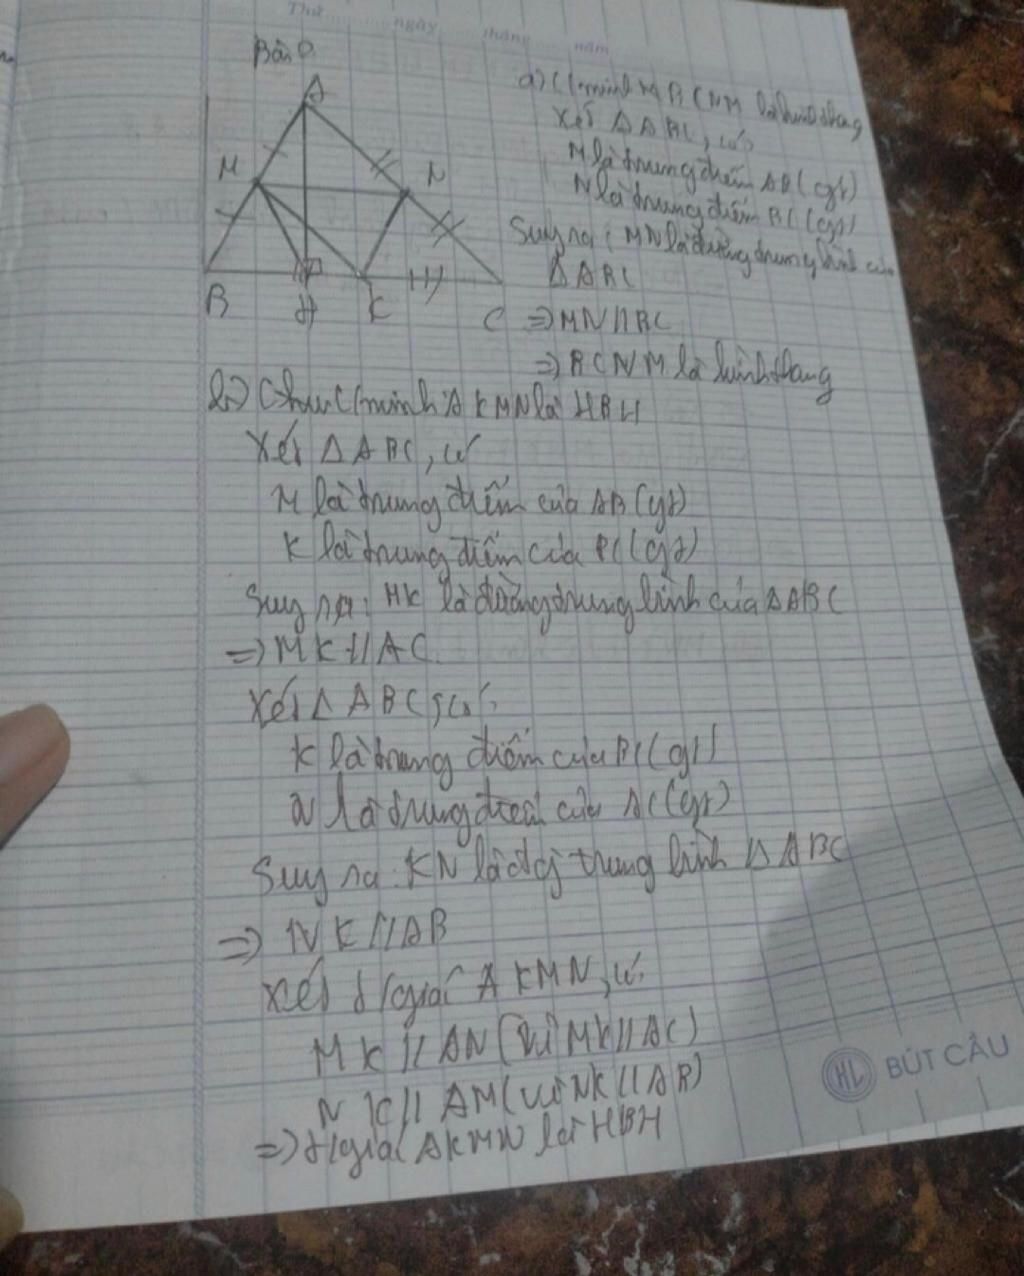 Thứ ngày tháng năm
Bài
A
M
N
B
H
K
C
a) C/minh BCNM là hình thang
Xét Δ ABC, có
M là trung điểm AB (gt)
N là trung điểm BC (gt)
Suy ra : MN là đường trung bình của
Δ ABC
=> MN // BC
=> BCNM là hình thang
b) C/minh AKMN là HBH
Xét Δ ABC, có
M là trung điểm của AB (gt)
K là trung điểm của BC (gt)
Suy ra : MK là đường trung bình của Δ ABC
=> MK // AC.
Xét Δ ABC, có
K là trung điểm của BC (gt)
N là trung điểm của AC (gt)
Suy ra : KN là đg trung bình Δ ABC
=> NK // AB
Xét t/giác AKMN, có
MK // AN (vì MK // AC)
NK // AM (vì NK // AB)
=> t/giác AKMN là HBH
HL BÚT CÂU